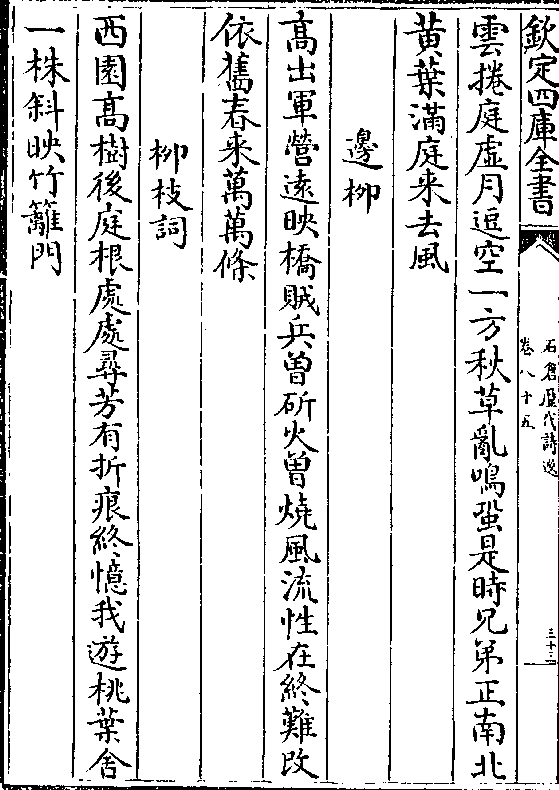 欽定四庫全書
石倉歷代詩選
卷八十五
三十三
雲捲庭虛月逗空一方秋草亂鳴蛩是時兄弟正南北
黄葉滿庭来去風
邊柳
髙出軍營遠映橋賊兵曽斫火曽燒風流性在終難改
依舊春来萬萬條
柳枝詞
西園髙樹後庭根處處尋芳有折痕終憶我遊桃葉舍
一株斜映竹籬門